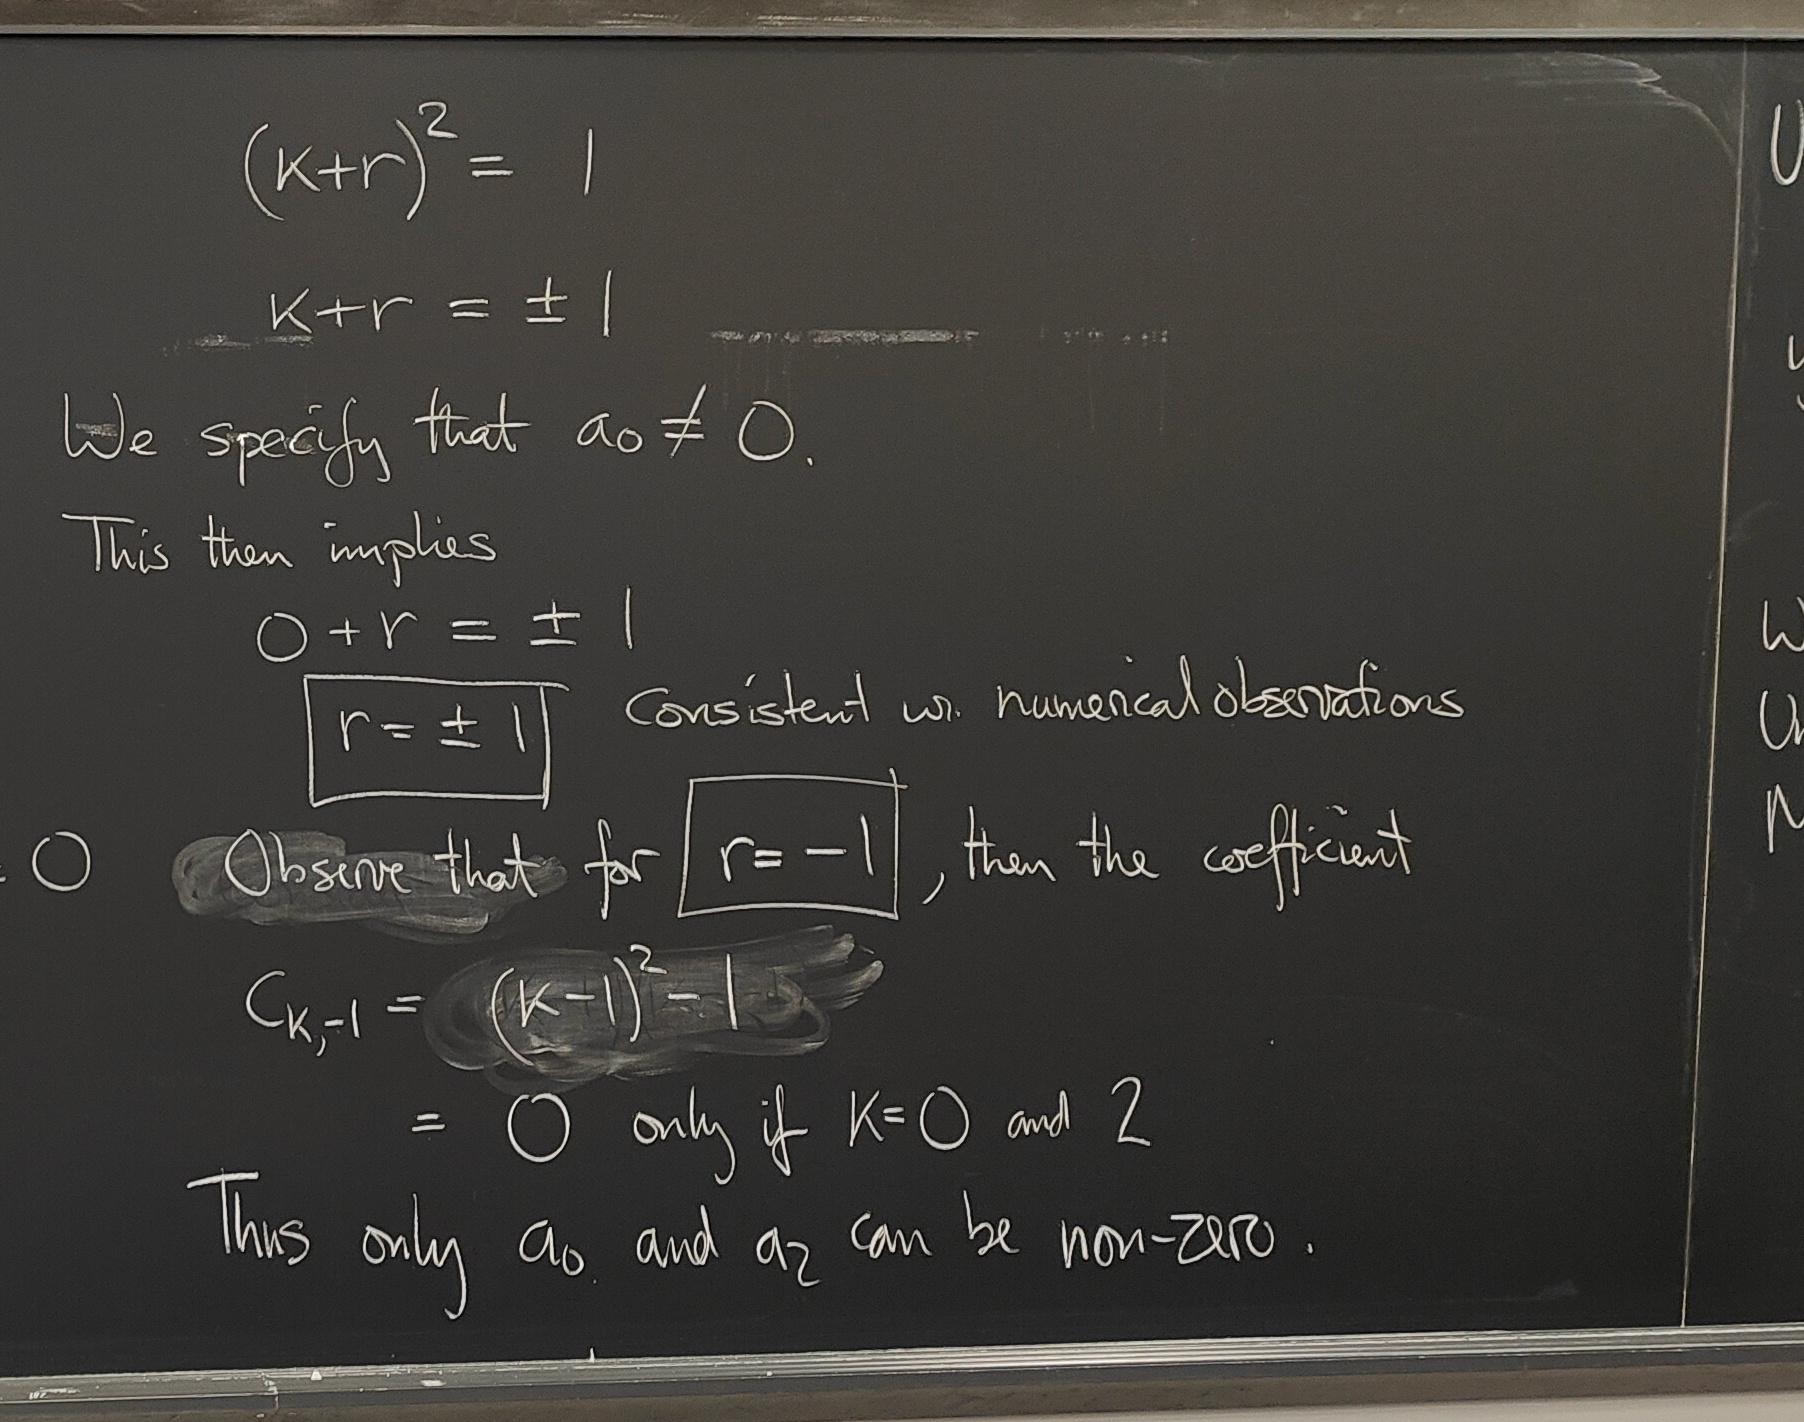 (k+r)² = 1
k+r = ± 1
We specify that a₀ ≠ 0.
This then implies
0 + r = ± 1
r = ± 1 Consistent w. numerical observations
= 0 Observe that for r = -1, then the coefficient
C_{k,-1} = (k-1)² - 1
= 0 only if k=0 and 2
Thus only a₀ and a₂ can be non-zero.